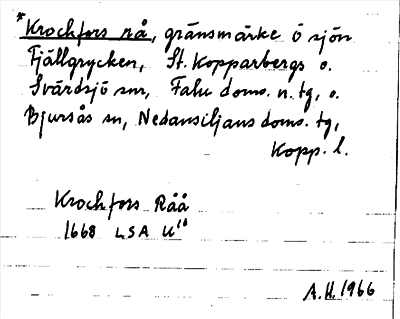 *Krochfors rå, gränsmärke i sjön
Fjällgrycken, St. Kopparbergs o.
Svärdsjö snr, Falu doms. n. tg, o.
Bjursås sn, Nedansiljans doms. tg,
Kopp. l.
Krochfors Råå
1668 LSA U¹⁸
A.H. 1966